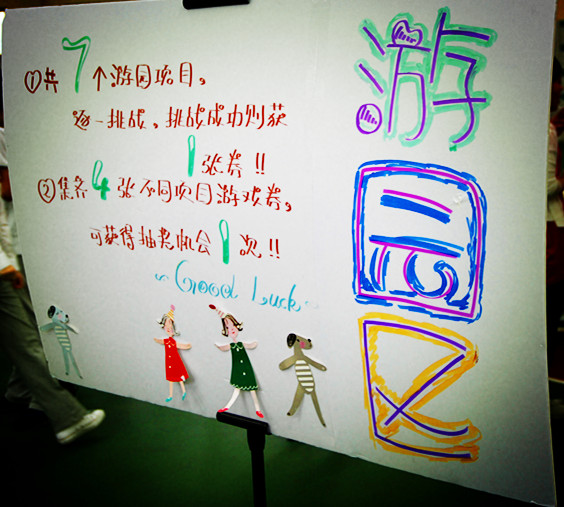 ①共7个游园项目,
逐一挑战,挑战成功则获
1张券!!
②集齐4张不同项目游戏券,
可获得抽奖机会1次!!
~Good Luck~
游
园
区